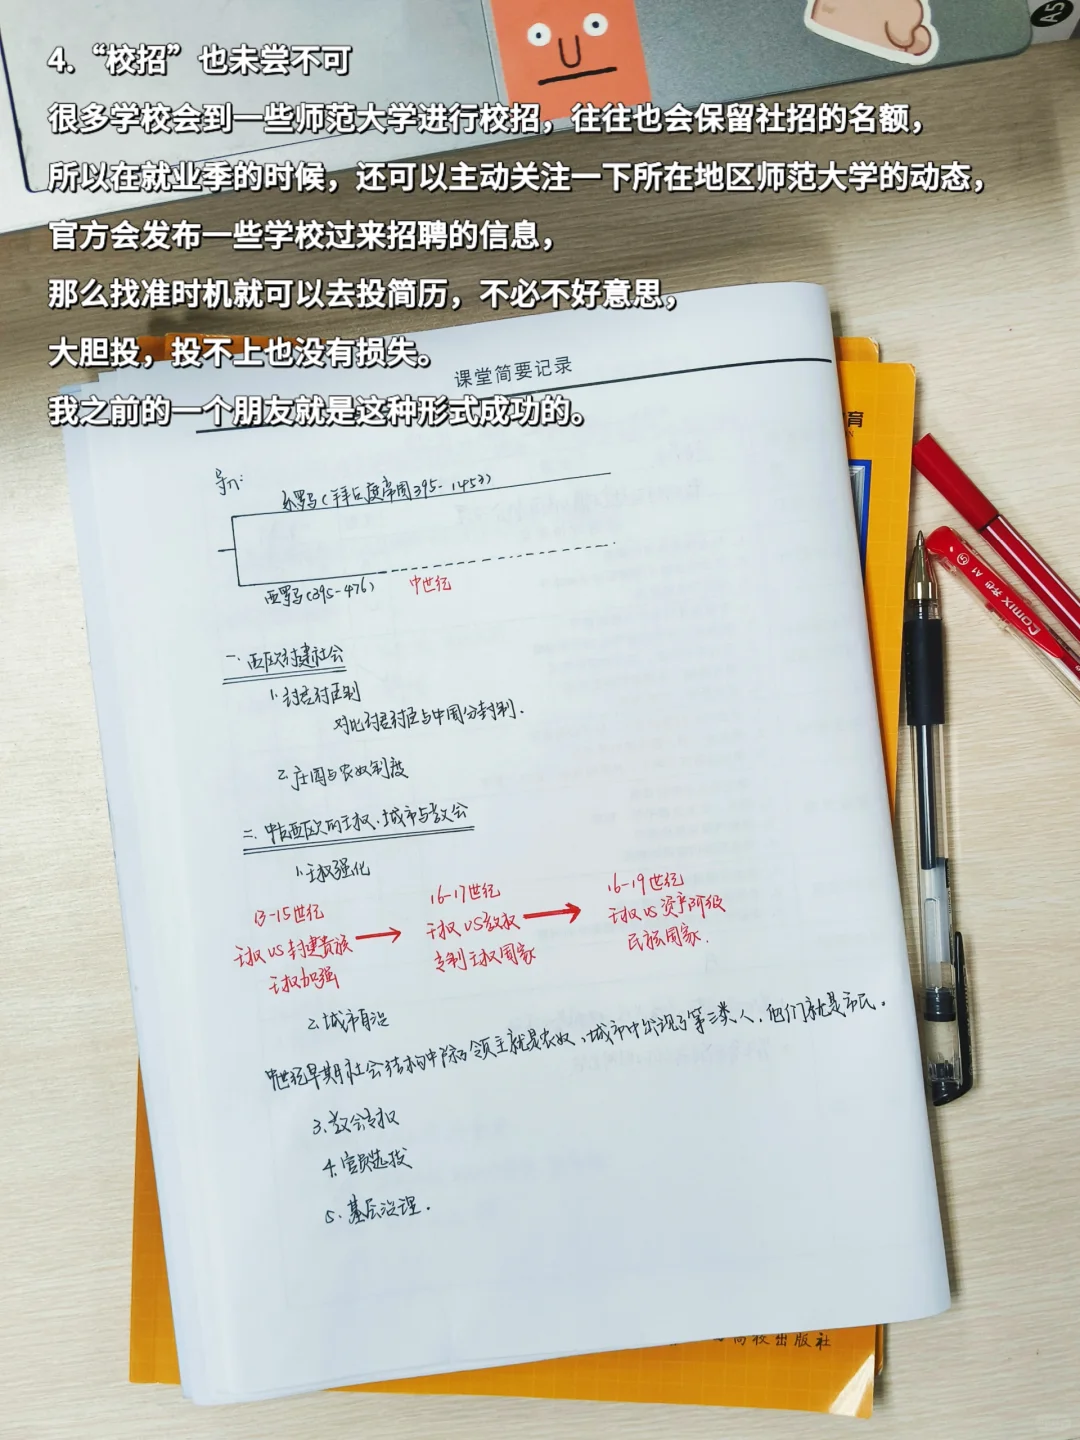 4.“校招”也未尝不可
很多学校会到一些师范大学进行校招，往往也会保留社招的名额，
所以在就业季的时候，还可以主动关注一下所在地区师范大学的动态，
官方会发布一些学校过来招聘的信息，
那么找准时机就可以去投简历，不必不好意思，
大胆投，投不上也没有损失。
我之前的一个朋友就是这种形式成功的。
A5
课堂简要记录
育
导入:
东罗马(拜占庭帝国395-1453)
西罗马(395-476)
中世纪
一.西欧封建社会
1.封君封臣制
对比封君封臣与中国分封制.
2.庄园与农奴制度
二.中古西欧的王权、城市与教会
1.王权强化
13-15世纪
王权VS封建贵族
王权加强
16-17世纪
王权VS教权
专制王权国家
16-19世纪
王权VS资产阶级
民族国家.
2.城市自治
中世纪早期社会结构中除了领主就是农奴,城市中出现了第三类人,他们就是市民。
3.教会专权
4.官员选拔
5.基层治理.
Comix 齐心 A1
高校出版社